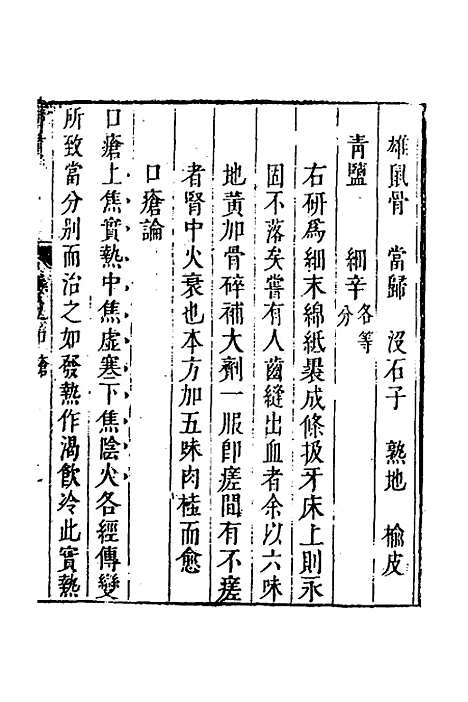 雄鼠骨　當歸　沒石子　熟地　榆皮
青鹽　細辛各等分
右研為細末綿紙裹成條扱牙床上則永
固不落矣嘗有人齒縫出血者余以六味
地黃加骨碎補大劑一服即瘥間有不瘥
者腎中火衰也本方加五味肉桂而愈
口瘡論
口瘡上焦實熱中焦虛寒下焦陰火各經傳變
所致當分别而治之如發熱作渴飲冷此實熱